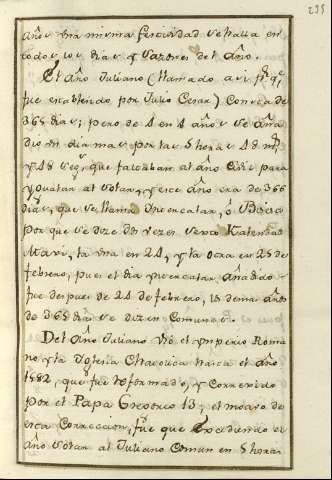 235
año una misma festividad se halla en
todos los dias y sazones del año.
El año Juliano (llamado asi pr. qe.
fue establecido por Julio Cesar) consta de
365 dias; pero de 4 en 4 años se aña
dio un dia mas por las 5 horas 48 ms.
y 48 segs. que faltaban al año Civil para
ygualar al Solar, y este año era de 366
dias, que se llama Yntercalar, ò Bisies
por que se dize dos vezes sexto Kalendas
Marti, la una en 24, y la otra en 25 de
febrero, pues el dia yntercalar añadido
fue despues de 24 de febrero, los demas años
de 365 dias se dizen Comunes.
Del año Juliano usó el ymperio Roma
no y la Yglesia Catholica hasta el año
1582, que fue reformado, y corregido
por el Papa Gregorio 13; el motivo de
esta Correccion, fue que excediendo el
año Solar al Juliano Comun en 5 horas